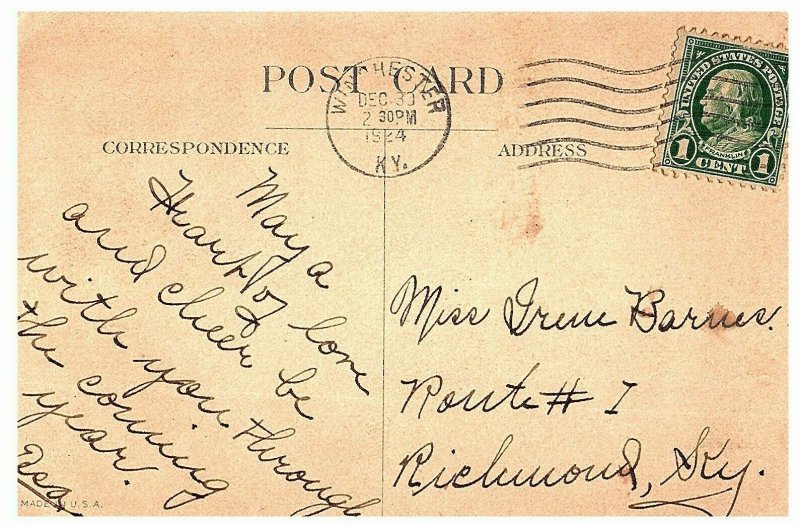 POST CARD
WINCHESTER
DEC 30
2 30PM
1924
KY.
UNITED STATES POSTAGE
FRANKLIN
1 CENT 1
CORRESPONDENCE
ADDRESS
May a
Heart of love
and cheer be
with you through
the coming
year.
MADE IN U.S.A.
Miss Irene Barnes.
Route # 1
Richmond, Ky.